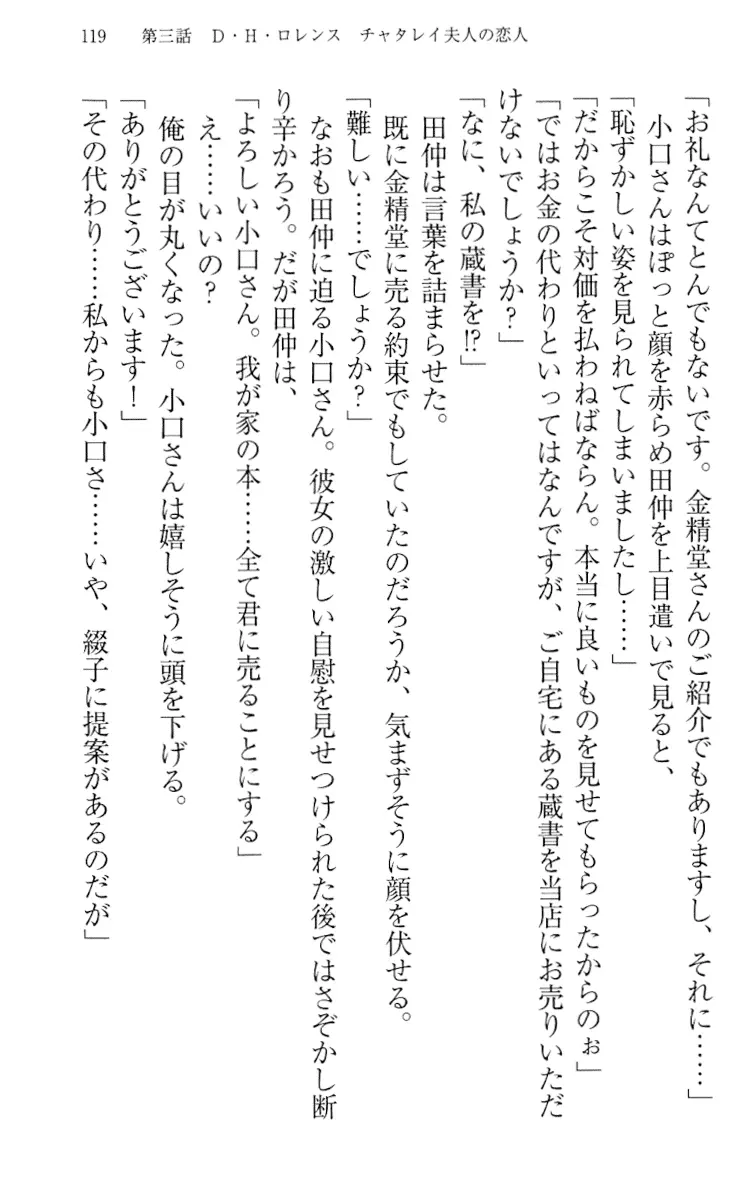 119　第三話　D・H・ロレンス　チャタレイ夫人の恋人
「お礼なんてとんでもないです。金精堂さんのご紹介でもありますし、それに……」
小口さんはぽっと顔を赤らめ田仲を上目遣いで見ると、
「恥ずかしい姿を見られてしまいましたし……」
「だからこそ対価を払わねばならん。本当に良いものを見せてもらったからのぉ」
「ではお金の代わりといってはなんですが、ご自宅にある蔵書を当店にお売りいただ
けないでしょうか？」
「なに、私の蔵書を!?」
田仲は言葉を詰まらせた。
既に金精堂に売る約束でもしていたのだろうか、気まずそうに顔を伏せる。
「難しい……でしょうか？」
なおも田仲に迫る小口さん。彼女の激しい自慰を見せつけられた後ではさぞかし断
り辛かろう。だが田仲は、
「よろしい小口さん。我が家の本……全て君に売ることにする」
え……いいの？
俺の目が丸くなった。小口さんは嬉しそうに頭を下げる。
「ありがとうございます！」
「その代わり……私からも小口さ……いや、綴子に提案があるのだが」